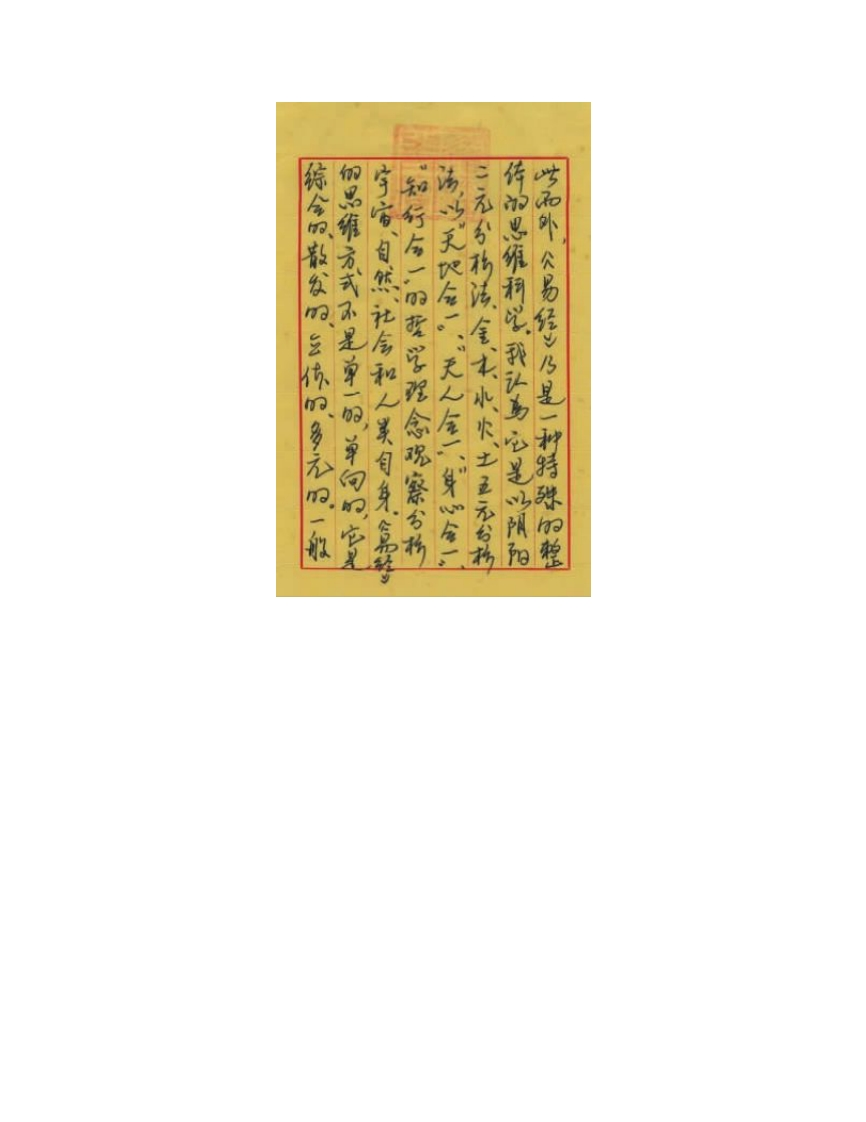 此而外，《易经》乃是一种特殊的整
体的思维科学。我认为它是以阴阳
二元分析法、金、木、水、火、土五元分析
法，以“天地合一”、“天人合一”、“身心合一”、
“知行合一”的哲学理念观察分析
宇宙、自然、社会和人类自身。《易经》
的思维方式不是单一的，单向的，它是
综合的、散发的、立体的、多元的。一般